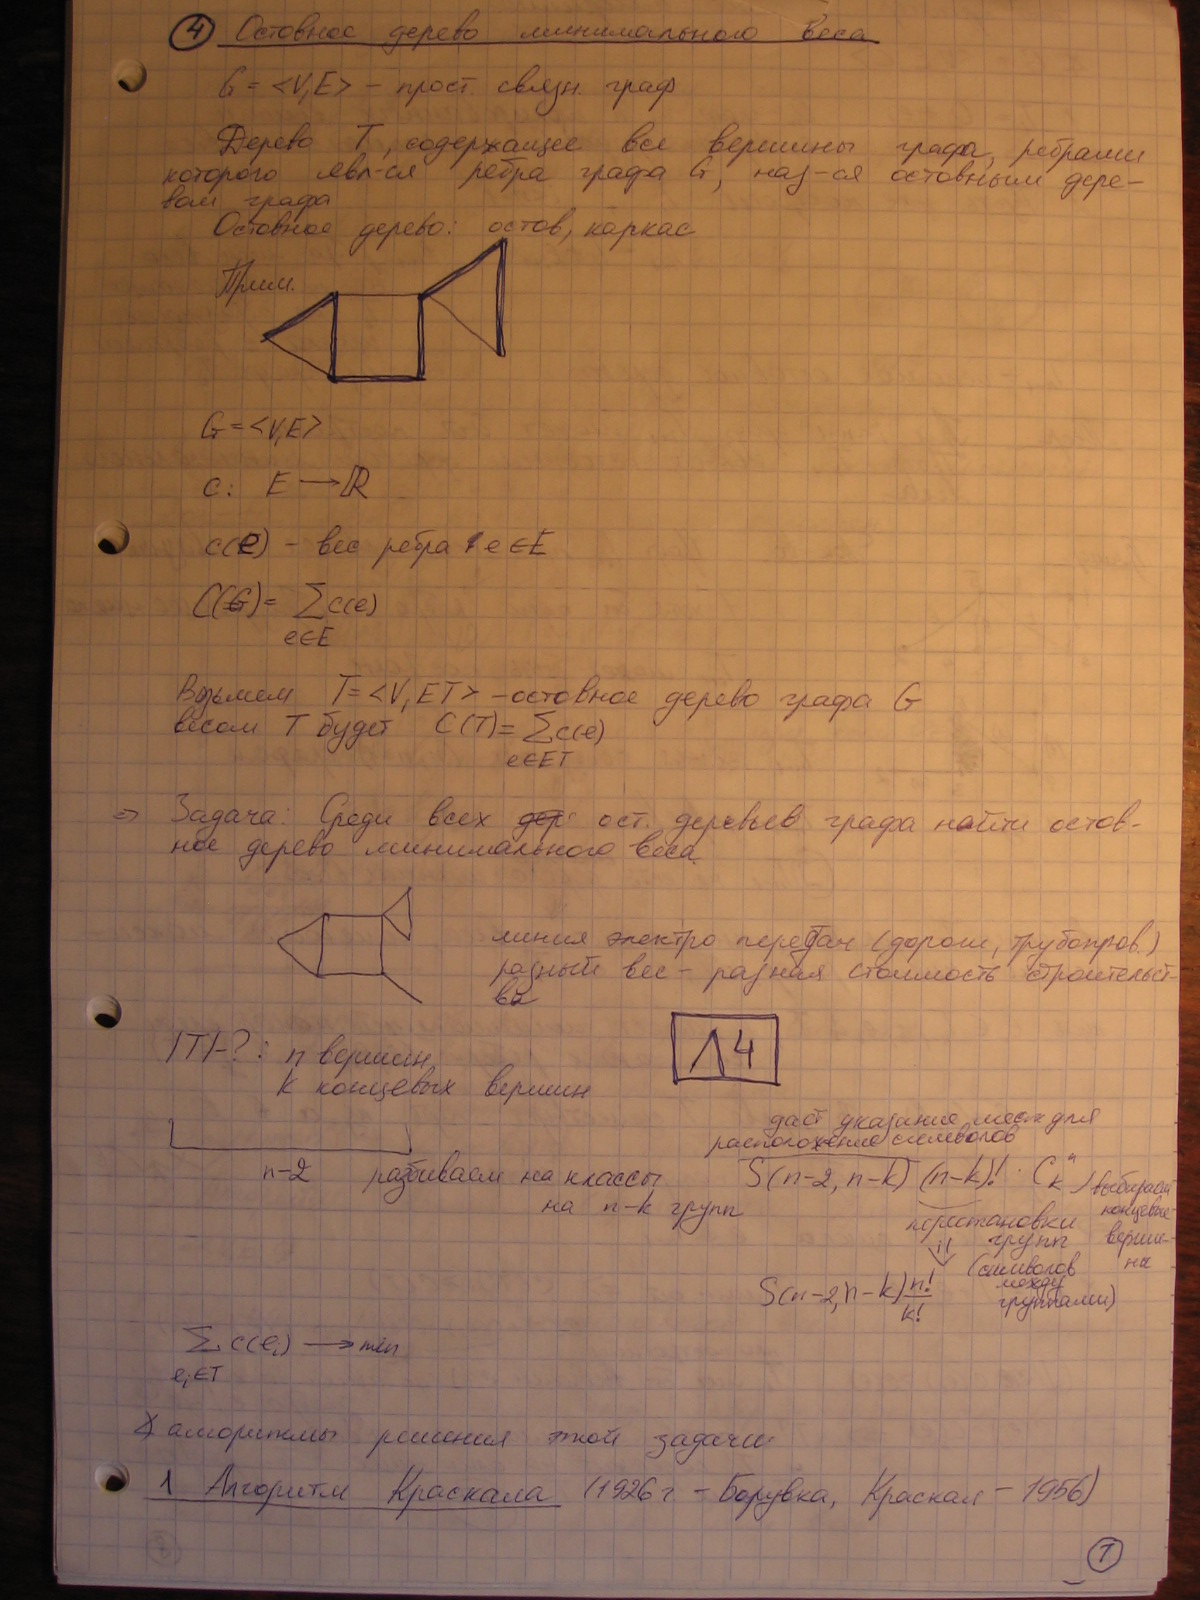 ④ Остовное дерево минимального веса
G = <V, E> – прост. связн. граф
Дерево T, содержащее все вершины графа, ребрами
которого явл-ся ребра графа G, наз-ся остовным дере-
вом графа
Остовное дерево: остов, каркас
Прим.
G = <V, E>
c: E → ℝ
c(e) – вес ребра e ∈ E
C(G) = ∑ c(e)
e ∈ E
Возьмем T = <V, ET> – остовное дерево графа G
весом T будет C(T) = ∑ c(e)
e ∈ ET
⇒ Задача: Среди всех ост. деревьев графа найти остов-
ное дерево минимального веса.
линия электро передач (дороги, трубопров.)
разный вес – разная стоимость строительст-
ва
|T| - ? : n вершин
k концевых вершин
Л4
даст указание мест для
расположение символов
n-2 разбиваем на классы
на n-k групп
S(n-2, n-k) (n-k)! · C_k^n
выбираем
концевые
верши-
на
перестановки
групп
(символов
между
группами)
S(n-2, n-k) n!/k!
∑ c(e_i) → min
e_i ∈ T
алгоритмы решения этой задачи
1 Алгоритм Краскала (1926 г – Борувка, Краскал – 1956)